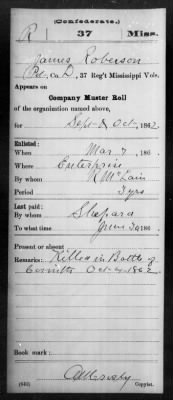 (Confederate.)
R 37 Miss.
James Roberson
Pvt, Co. D, 37 Reg't Mississippi Vols.
Appears on
Company Muster Roll
of the organization named above,
for Sept & Oct, 1862.
Enlisted:
When Mar 7, 186 .
Where Enterprise
By whom R McLain
Period 3 yrs
Last paid:
By whom Shepard
To what time June 30 186 .
Present or absent
Remarks: Killed in Battle of
Corinth Oct 4 1862
Book mark:
(642)
Copyist.